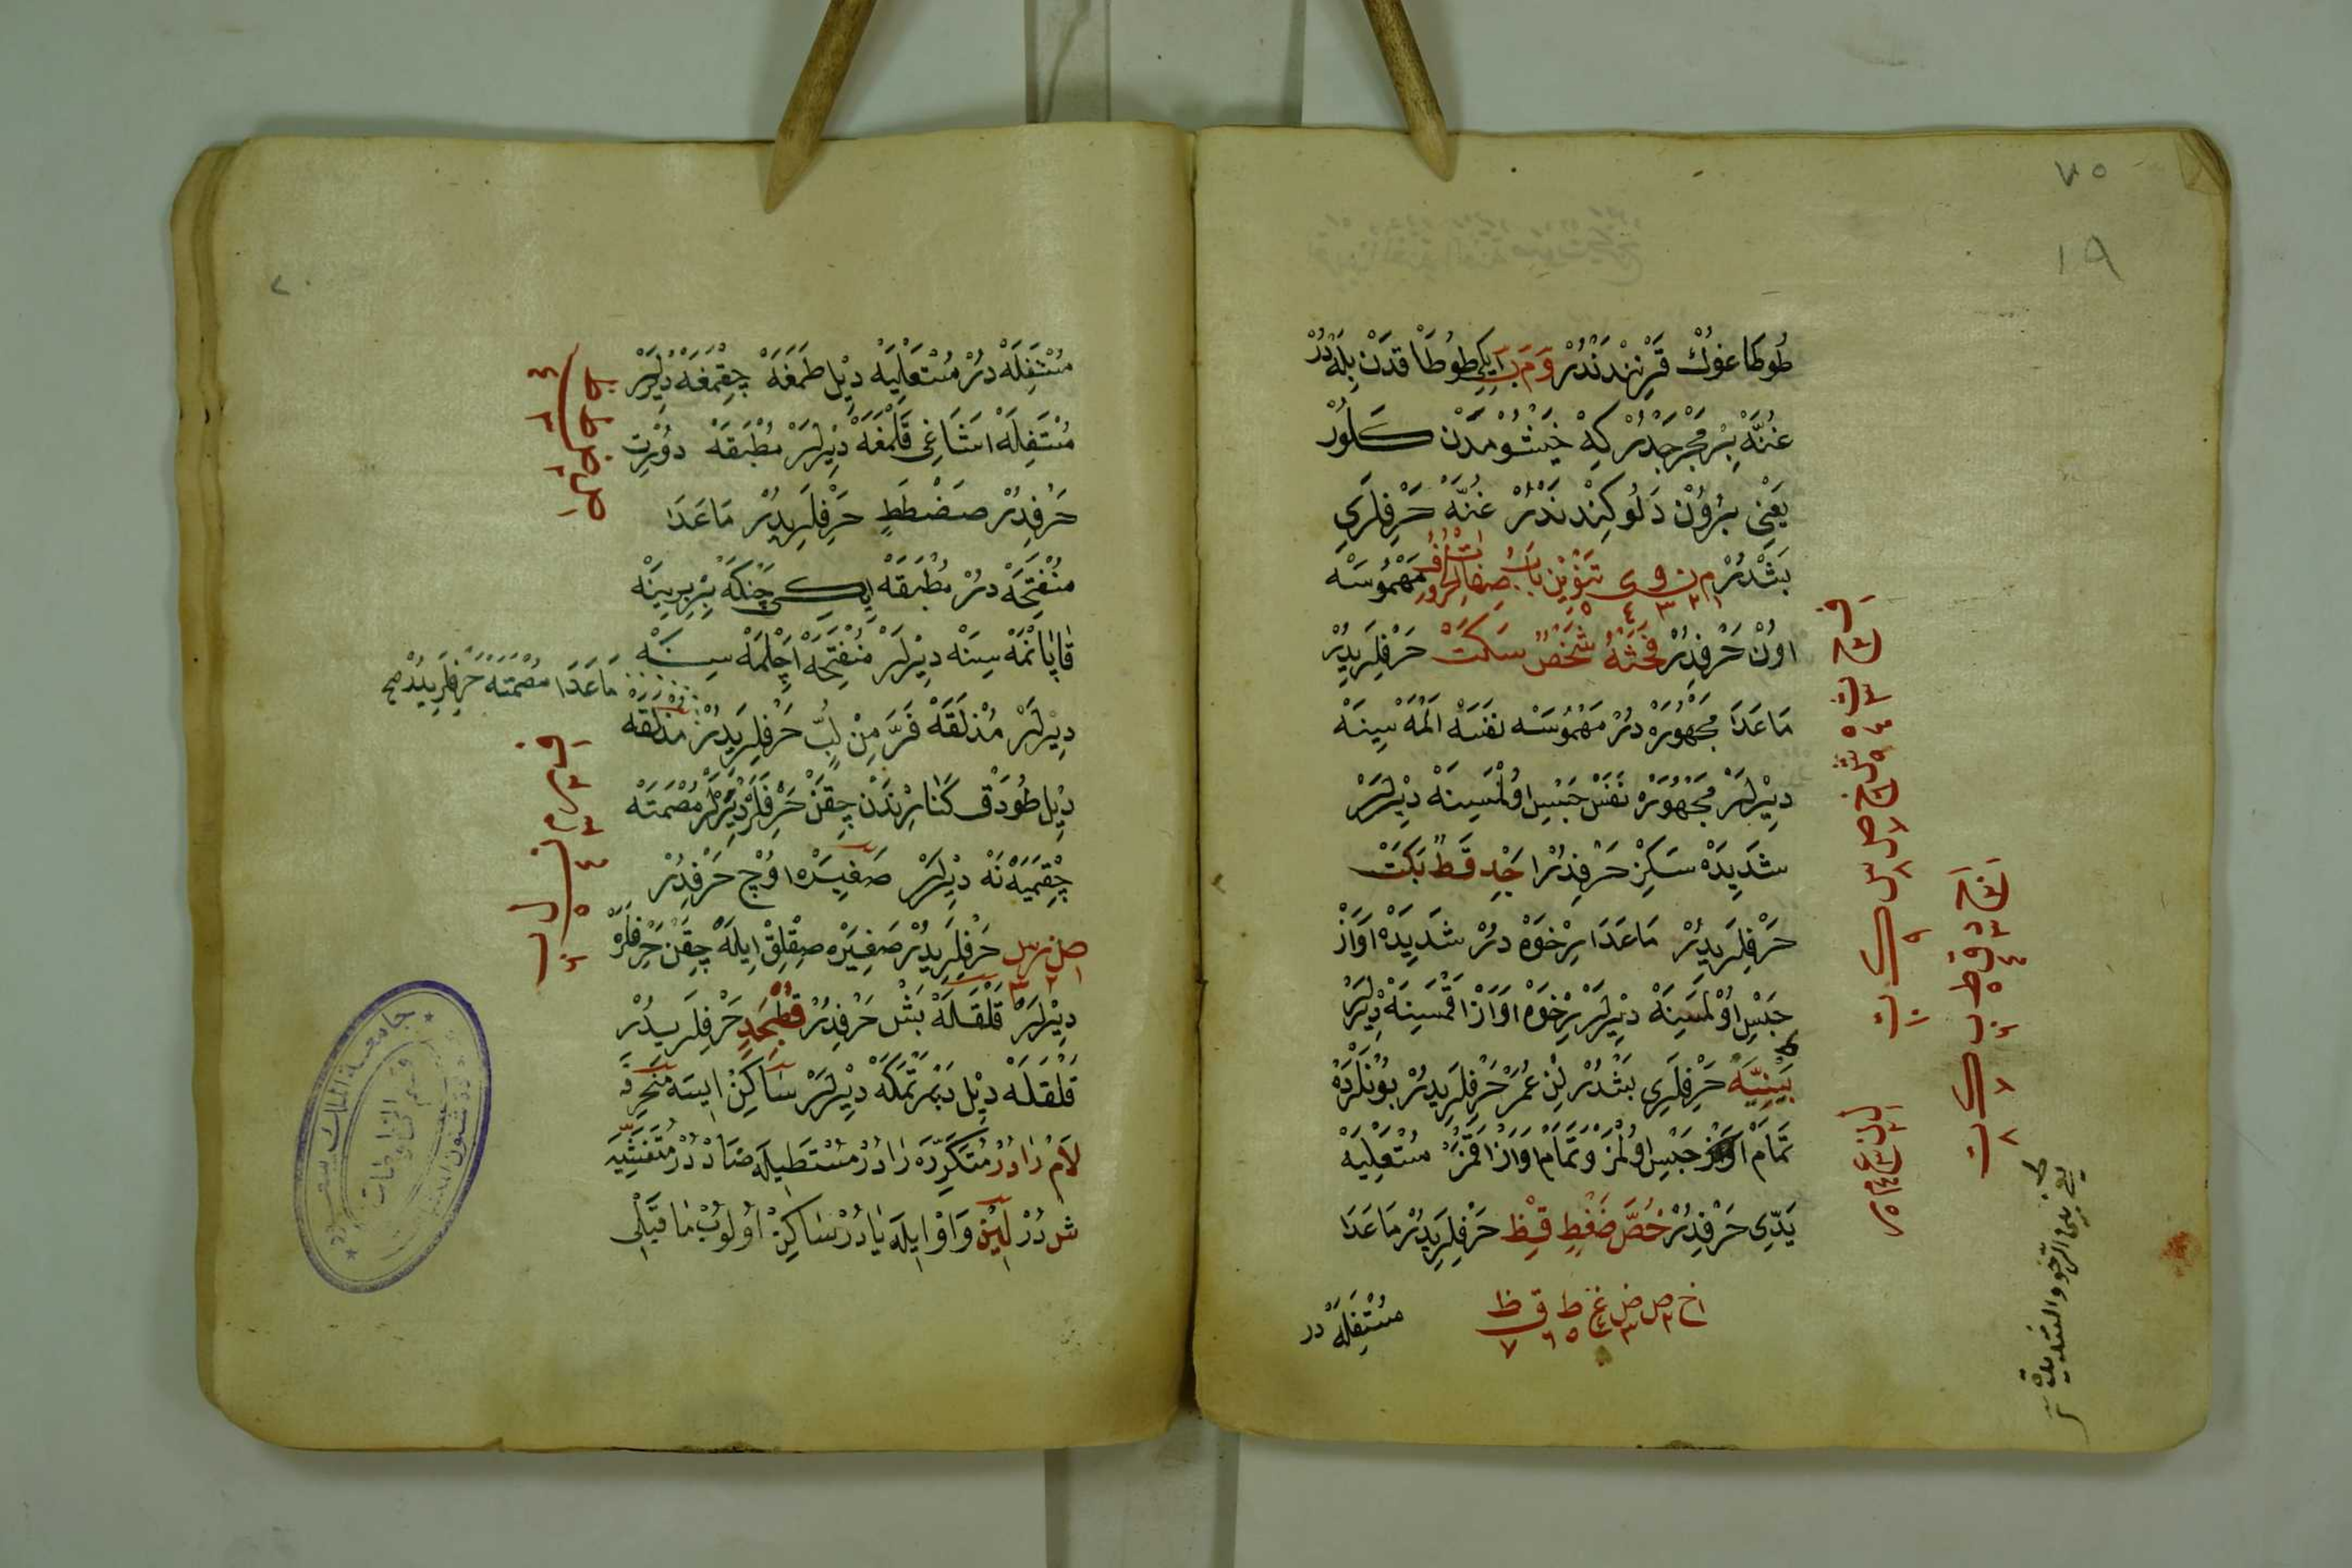 ٧٥
١٩
طُوطَاغوُكْ قَرْنِنْدَنْدُرْ وَ مَ بَ اِيكِي طُوطَاقدَنْ بِلَهْ دُرْ
غُنَّهْ بِرْ مَخْرَجْدُرْ كِهْ خَيْشُومدَنْ كَلُورْ
يَعْنِي بُرُوُنْ دَلُوكِنْدنَدْرْ غُنَّهْ حَرْفلَرِي
بَشْدُرْ م ن و ي تَنْوِيْن بَابُ صِفَاتِ الْحُرُوفِ مَهْمُوُسَهْ
١ ٢ ٣ ٤ ٥
اوُنْ حَرْفِدُرْ فَحَثَّهُ شَخْصٌ سَكَتْ حَرْفلَرِيدُرْ
مَاعَدَا مَجْهُورَهْ دُرْ مَهْمُوسَهْ نفَسَهْ الَمَهْ سِينَهْ
دِيْرلَرْ مَجْهُورَهْ نَفَسْ حَبْسِ اوُلْمَسِينَهْ دِيْرلَرْ
شَدِيدَهْ سَكِزْ حَرْفِدُرْ اَجْدِ قَطٍ بَكَتْ
حَرْفلَرِيدُرْ مَاعَدَا رِخْوَهْ دُرْ شَدِيدَهْ اَوَازْ
حَبْسِ اوُلْمَسِينَهْ دِيْرلَرْ رِخْوَهْ اوَازْ اَقْمَسِينَهْ دِيْرلَرْ
بَيْنِيَّهْ حَرْفلَرِي بَشْدُرْ لِنْ عُمَرْ حَرْفلَرِيدُرْ بُونلَرْدَهْ
تَمَامْ اوَازْ حَبْسِ اوُلْمَزْ وَتَمَامْ اوَازْ اَقْمَزْ مُسْتَعْلِيَهْ
يَدِّي حَرْفِدُرْ خُصَّ ضَغْطٍ قِظْ حَرْفلَرِيدُرْ مَاعَدَا
خ ص ض غ ط ق ظ
١ ٢ ٣ ٤ ٥ ٦ ٧
مُسْتَفِلَهْ در
ف ح ث ه ش خ ص س ك ت
ل ن ع م ر
ا ج د ق ط ب ك ت
٢٠
مُسْتَفِلَهْ دُرْ مُسْتَعْلِيَهْ دِيْل طَمَغَهْ چِقْمَغَهْ دِيْرلَرْ
مُسْتَفِلَهْ اشَاغِي قَلْمَغَهْ دِيْرلَرْ مُطْبَقَهْ دوُرْت
حَرْفِدُرْ صَضْطَظٍ حَرْفلَرِيدُرْ مَاعَدَا
مُنْفَتِحَهْ دُرْ مُطْبَقَهْ اِيكي چَنَكَهْ بِرْبِرِينَهْ
قَاپَانْمَهْ سِينَهْ دِيْرلَرْ مُنْفَتِحَهْ اَچِلْمَهْ سِينَهْ
مَاعَدَا مُصْمَتَهْ حَرْفلَرِيدُرْ صح
دِيْرلَرْ مُذْلَقَهْ فَرَّ مِنْ لُبٍّ حَرْفلَرِيدُرْ مُذْلَقَهْ
دِيْل طُودَقْ كَنَارِنْدَنْ چِقَنْ حَرْفلَرَهْ دِيْرلَرْ مُصْمَتَهْ
چِقْمَيَهْ نَهْ دِيْرلَرْ صَفِيرَهْ اوُچْ حَرْفِدُرْ
ص ز س حَرْفلَرِيدُرْ صَفِيرَهْ صِقْلِقْ اِيلَهْ چِقَنْ حَرْفلَرَهْ
١ ٢ ٣
دِيْرلَرْ قَلْقَلَهْ بَشْ حَرْفِدُرْ قُطْبُجَدٍ حَرْفلَرِيدُرْ
قَلْقَلَهْ دِيْل دَپْرَتْمَكَهْ دِيْرلَرْ سَاكِنْ اِيسَهْ مُنْحَرِفَهْ
لاَمْ رَا دُرْ مُتَكَرِّرَهْ رَا دُرْ مُسْتَطِيلَهْ ضَادْ دُرْ مُتَفَشِّيَهْ
ش دُرْ لِيْن وَاوْ اِيلَهْ يَا دُرْ سَاكِنْ اوُلُوبْ مَا قَبْلِي
ص ض ط ظ
ف ر م ن ل ب
جامعة الملك سعود
قسم المخطوطات